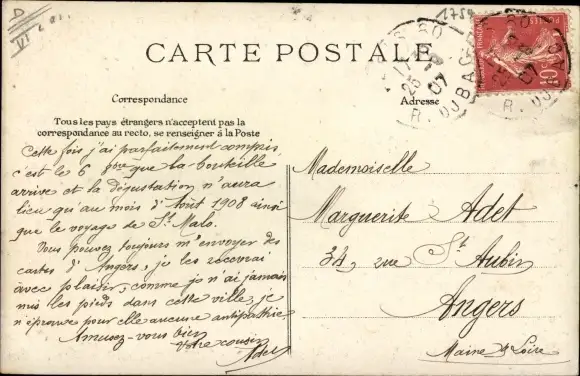 1754
CARTE POSTALE
Correspondance
Adresse
Tous les pays étrangers n'acceptent pas la
correspondance au recto, se renseigner à la Poste
Cette fois j'ai parfaitement compris
c'est le 6 que la bouteille
arrive et la dégustation n'aura
lieu qu'au mois d'Août 1908 ainsi
que le voyage de St Malo.
Vous pouvez toujours m'envoyer des
cartes d'Angers, je les recevrai
avec plaisir, comme je n'ai jamais
mis les pieds dans cette ville, je
n'éprouve pour elle aucune antipathie.
Amusez-vous bien
Votre cousin
Adet
Mademoiselle
Marguerite Adet
34, rue St Aubin
Angers
Maine & Loire